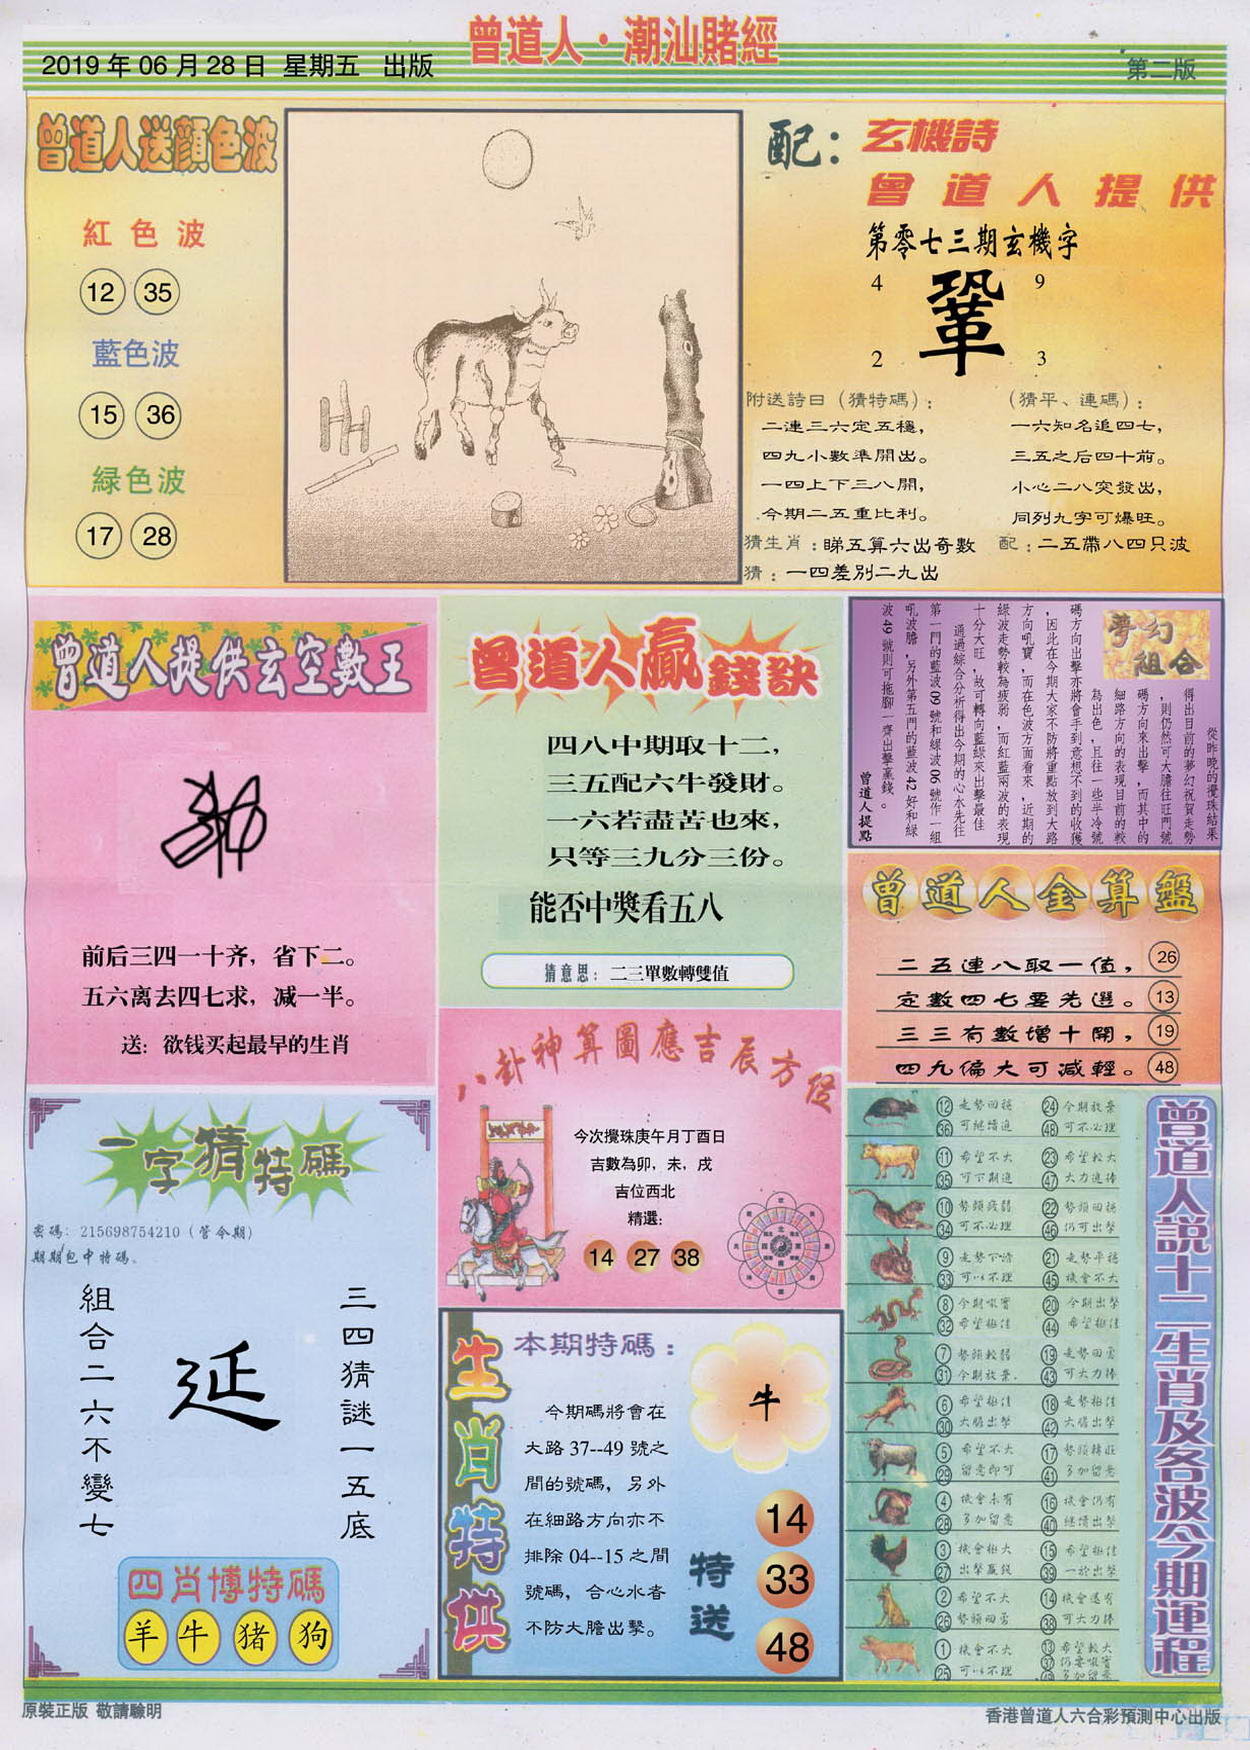 曾道人·潮汕賭經
2019年06月28日 星期五 出版
第二版
曾道人送顔色波
紅色波
12 35
藍色波
15 36
緑色波
17 28
配：玄機詩
曾道人提供
第零七三期玄機字
4 9
鞏
2 3
附送詩曰（猜特碼）：
二連三六定五穩，
四九小數準開出。
一四上下三八開，
今期二五重比利。
（猜平、連碼）：
一六知名追四七，
三五之后四十前。
小心二八突發出，
同列九字可爆旺。
猜生肖：睇五算六出奇數
配：二五帶八四只波
猜：一四差別二九出
曾道人提供玄空數王
前后三四一十齐，省下二。
五六离去四七求，减一半。
送：欲钱买起最早的生肖
曾道人贏錢訣
四八中期取十二，
三五配六牛發財。
一六若盡苦也來，
只等三九分三份。
能否中獎看五八
猜意思：二三單數轉雙值
夢幻
組合
從昨晚的攪珠結果
得出目前的夢幻祝賀走勢
，則仍然可大膽往旺門號
碼方向來出擊，而其中的
細路方向的表現目前的較
為出色，且往一些半冷號
碼方向出擊亦將會手到意想不到的收獲
，因此在今期大家不防將重點放到大路
方向吼寶，而在色波方面看來，近期的
綠波走勢較為疲弱，而紅藍兩波的表現
十分大旺，故可轉向藍綠來出擊最佳
通過綜合分析得出今期的心水先往
第一門的藍波09號和綠波06號作一組
吼波膽，另外第五門的藍波42好和綠
波49號則可拖腳一齊出擊贏錢。
曾道人提點
曾道人金算盤
二五連八取一值，26
定數四七要先選。13
三三有數增十開，19
四九偏大可減輕。48
八卦神算圖應吉辰方位
今次攪珠庚午月丁酉日
吉數為卯，未，戌
吉位西北
精選：
14 27 38
一字猜特碼
密碼：215698754210（管今期）
期期包中特碼。
三四猜謎一五底
延
組合二六不變七
四肖博特碼
羊 牛 猪 狗
生肖特供
本期特碼：
牛
今期碼將會在
大路37--49號之
間的號碼，另外
在細路方向亦不
排除04--15之間
號碼，合心水者
不防大膽出擊。
特送
14
33
48
曾道人説十二生肖及各波今期運程
12 走勢回穩 24 今期放棄
36 可継續追 48 可不必理
11 希望不大 23 希望較大
35 可下期追 47 大力追捧
10 勢頭疲弱 22 勢頭回穩
34 可不必理 46 仍可出擊
9 走勢下滑 21 走勢平穩
33 可以不理 45 機會不大
8 今期吸寶 20 今期出擊
32 希望極佳 44 希望極佳
7 勢頭較弱 19 走勢回勇
31 今期放棄. 43 可大力捧
6 希望極佳 18 走勢極佳
30 大膽出擊 42 大膽出擊
5 希望不大 17 勢頭轉旺
29 留意即可 41 多加留意
4 機會未有 16 機會仍有
28 多加留意 40 継續出擊
3 機會極大 15 希望極佳
27 出擊贏錢 39 一於出擊
2 希望不大 14 機會還有
26 勢頭回勇 38 可大力捧
1 機會不大 13 希望較大
25 可以不理 37 仍要吸寶
49 多加留意
原裝正版 敬請驗明
香港曾道人六合彩預測中心出版